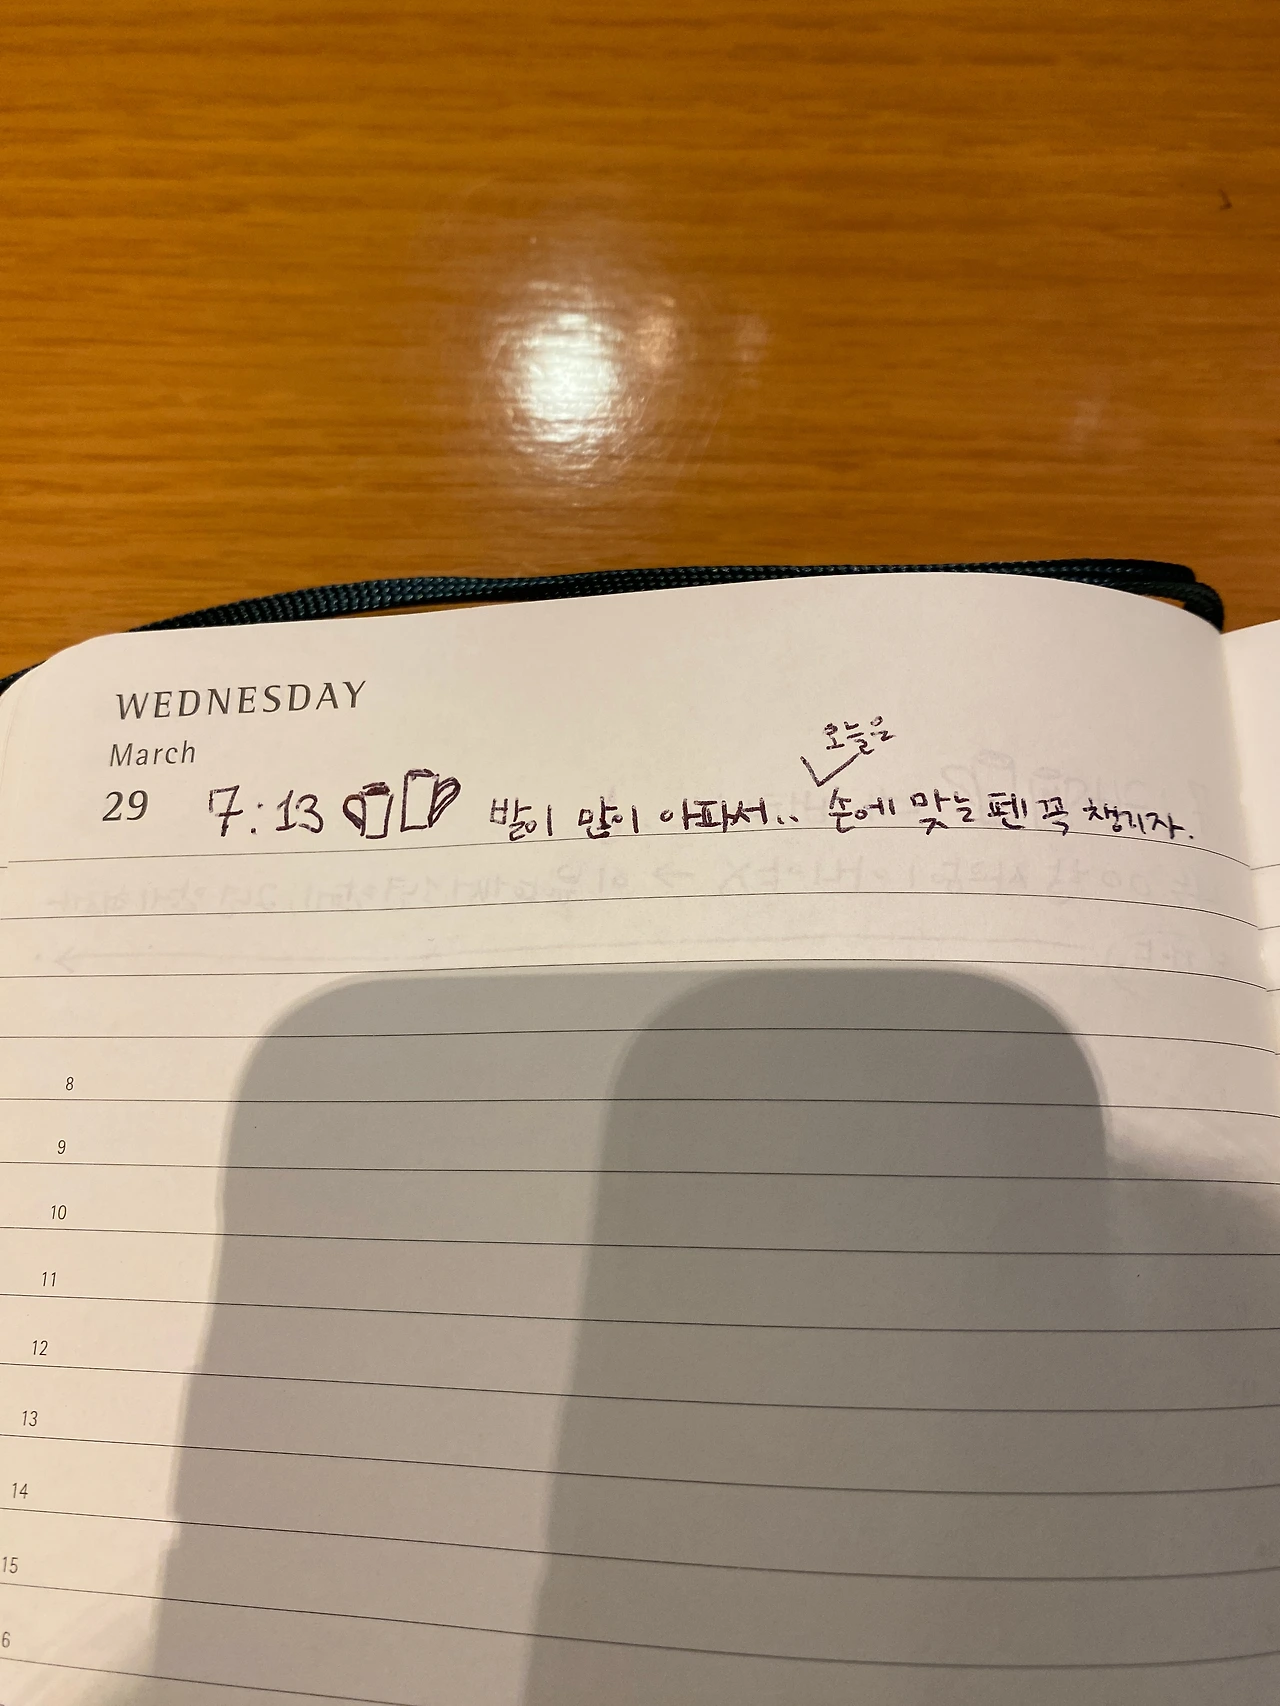 WEDNESDAY
March
오늘은
29 7:13 발이 많이 아파서.. 손에 맞는 펜 꼭 챙기자.
8
9
10
11
12
13
14
15
6